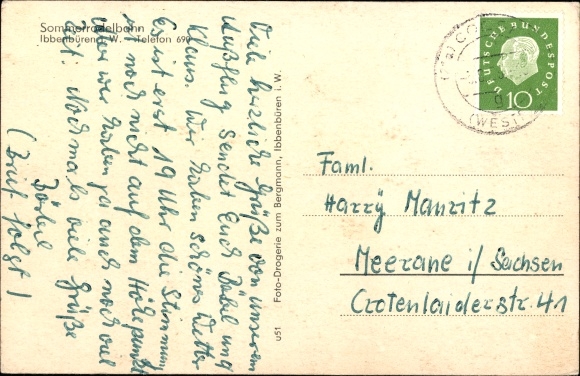 Sommerrodelbahn
Ibbenbüren i. W. - Telefon 690
Viele herzliche Grüße von unserem
Ausflug sendet Euch Bärbel und
Klaus. Wir haben schönes Wetter
Es ist erst 19 Uhr die Stimmung
ist noch nicht auf dem Höhepunkt
aber wir haben ja auch noch viel
Zeit! Nochmals viele Grüße
Bärbel
(Brief folgt)
u51 Foto-Drogerie zum Bergmann, Ibbenbüren i. W.
DEUTSCHE BUNDESPOST
10
(WEST
g
Faml.
Harry Mauritz
Meerane i/Sachsen
Crotenlaiderstr. 41